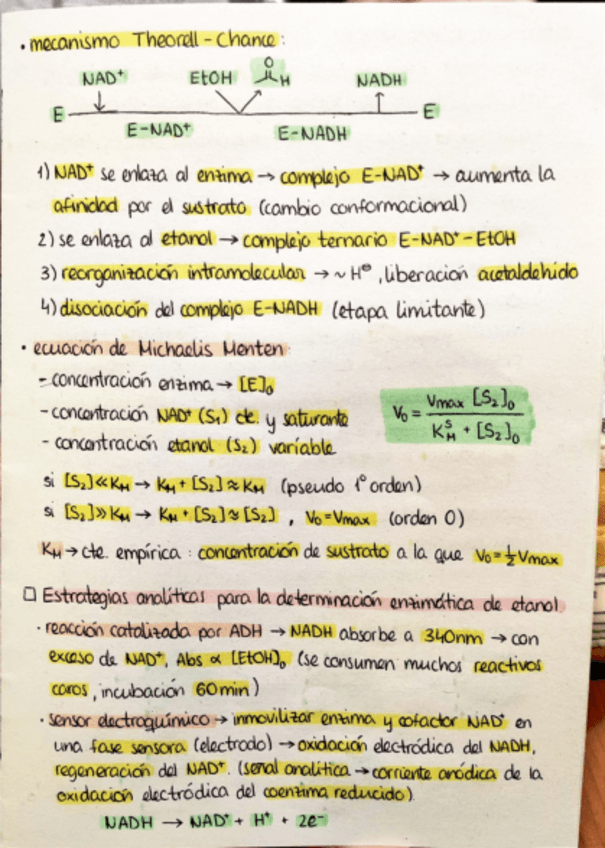 • mecanismo Theorell-Chance:
NAD⁺ EtOH O H NADH
E E
E-NAD⁺ E-NADH
1) NAD⁺ se enlaza al enzima → complejo E-NAD⁺ → aumenta la
afinidad por el sustrato (cambio conformacional)
2) se enlaza al etanol → complejo ternario E-NAD⁺-EtOH
3) reorganización intramolecular → ~H⊖, liberación acetaldehido
4) disociación del complejo E-NADH (etapa limitante)
• ecuación de Michaelis Menten:
- concentración enzima → [E]₀
- concentración NAD⁺ (S₁) cte. y saturante
- concentración etanol (S₂) variable
V₀ = Vmax [S₂]₀ / K_M^S + [S₂]₀
si [S₂] << K_M → K_M + [S₂] ≈ K_M (pseudo 1º orden)
si [S₂] >> K_M → K_M + [S₂] ≈ [S₂], V₀ = Vmax (orden 0)
K_M → cte. empírica : concentración de sustrato a la que V₀ = ½ Vmax
□ Estrategias analíticas para la determinación enzimática de etanol.
• reacción catalizada por ADH → NADH absorbe a 340nm → con
exceso de NAD⁺, Abs ∝ [EtOH]₀ (se consumen muchos reactivos
caros, incubación 60min)
• sensor electroquímico → inmovilizar enzima y cofactor NAD⁺ en
una fase sensora (electrodo) → oxidación electródica del NADH,
regeneración del NAD⁺. (señal analítica → corriente anódica de la
oxidación electródica del coenzima reducido)
NADH → NAD⁺ + H⁺ + 2e⁻